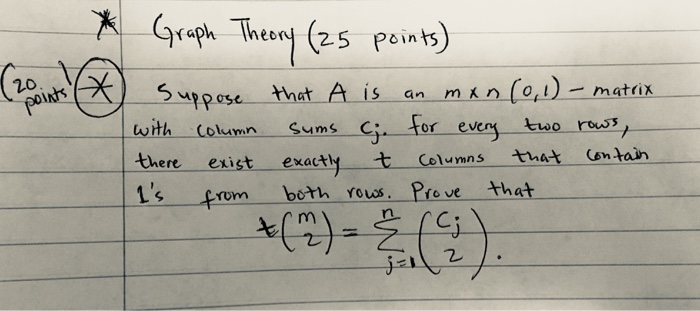 * Graph Theory (25 points)
(20 points!) * Suppose that A is an m x n (0,1) - matrix
with column sums Cj. For every two rows,
there exist exactly t columns that contain
1's from both rows. Prove that
t(m 2) = Σ j=1 n (Cj 2).